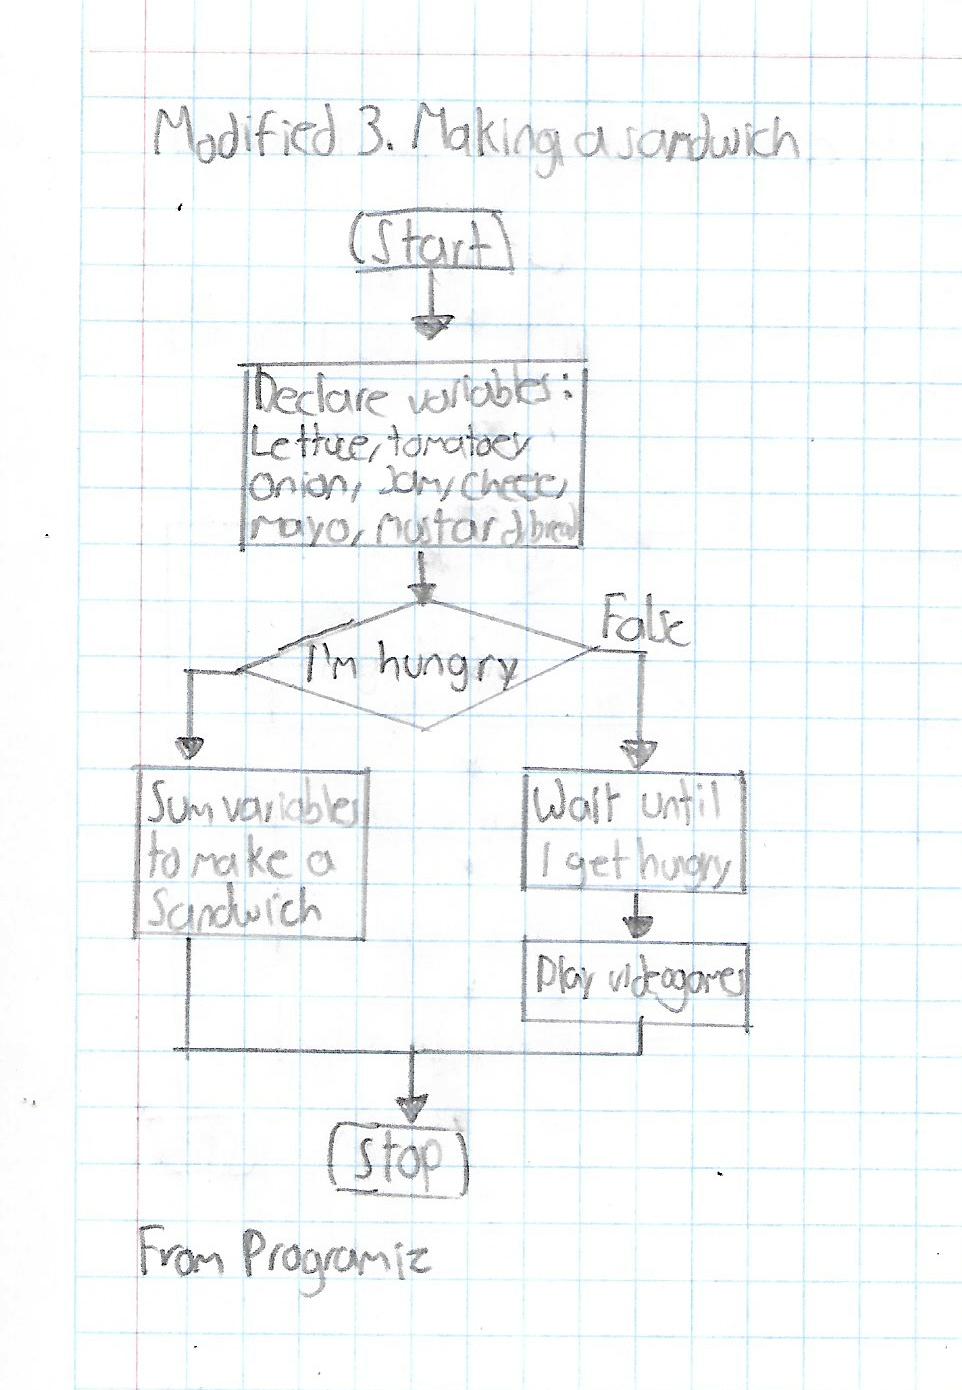 Modified 3. Making a sandwich
Start
Declare variables:
Lettuce, tomatoes
onion, Jam, cheese,
mayo, mustard, bread
False
I'm hungry
Sum variables
to make a
Sandwich
Wait until
I get hungry
Play videogames
Stop
From Programiz